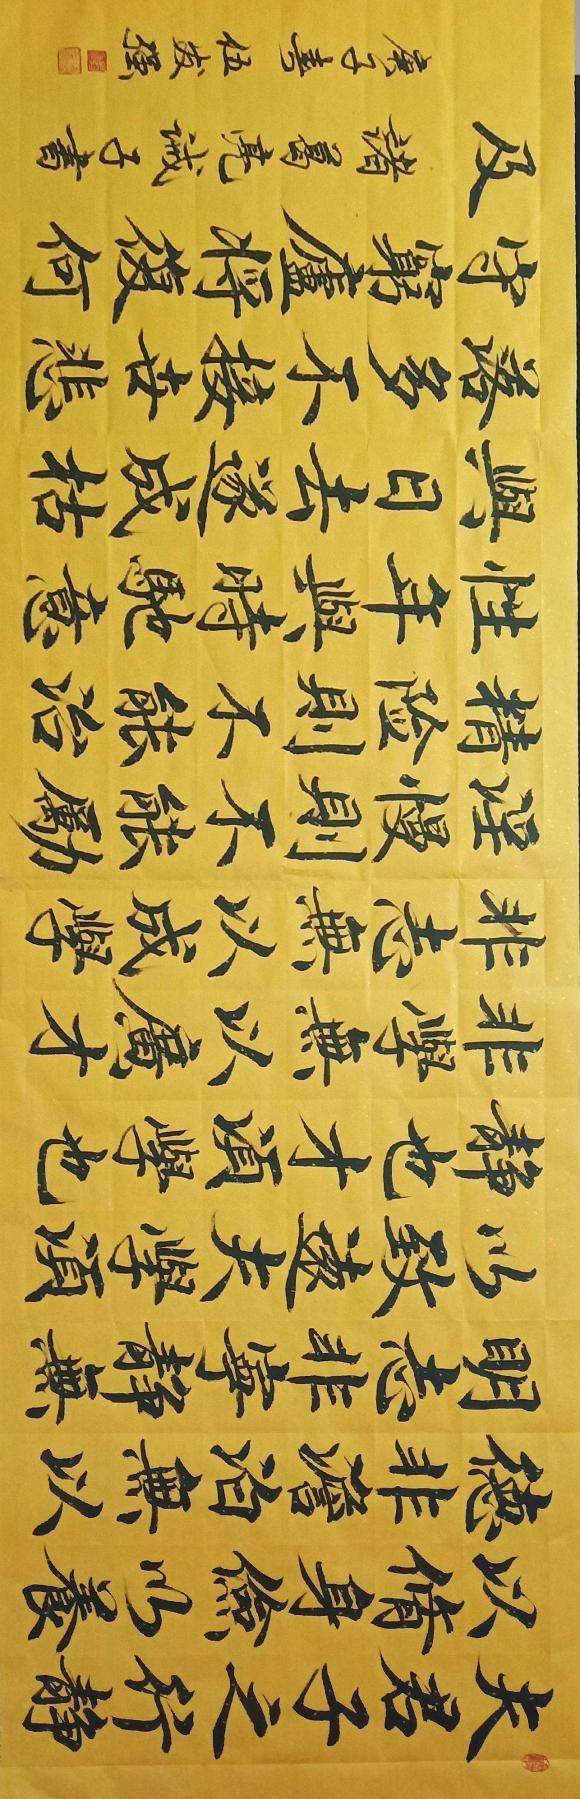 夫君子之行靜
以脩身儉以養
德非澹泊無以
明志非寧靜無
以致遠夫學須
靜也才須學也
非學無以廣才
非志無以成學
淫慢則不能勵
精險則不能治
性年與時馳意
與日去遂成枯
落多不接世悲
守窮廬將復何
及 諸葛亮誡子書
庚子春 伍 强